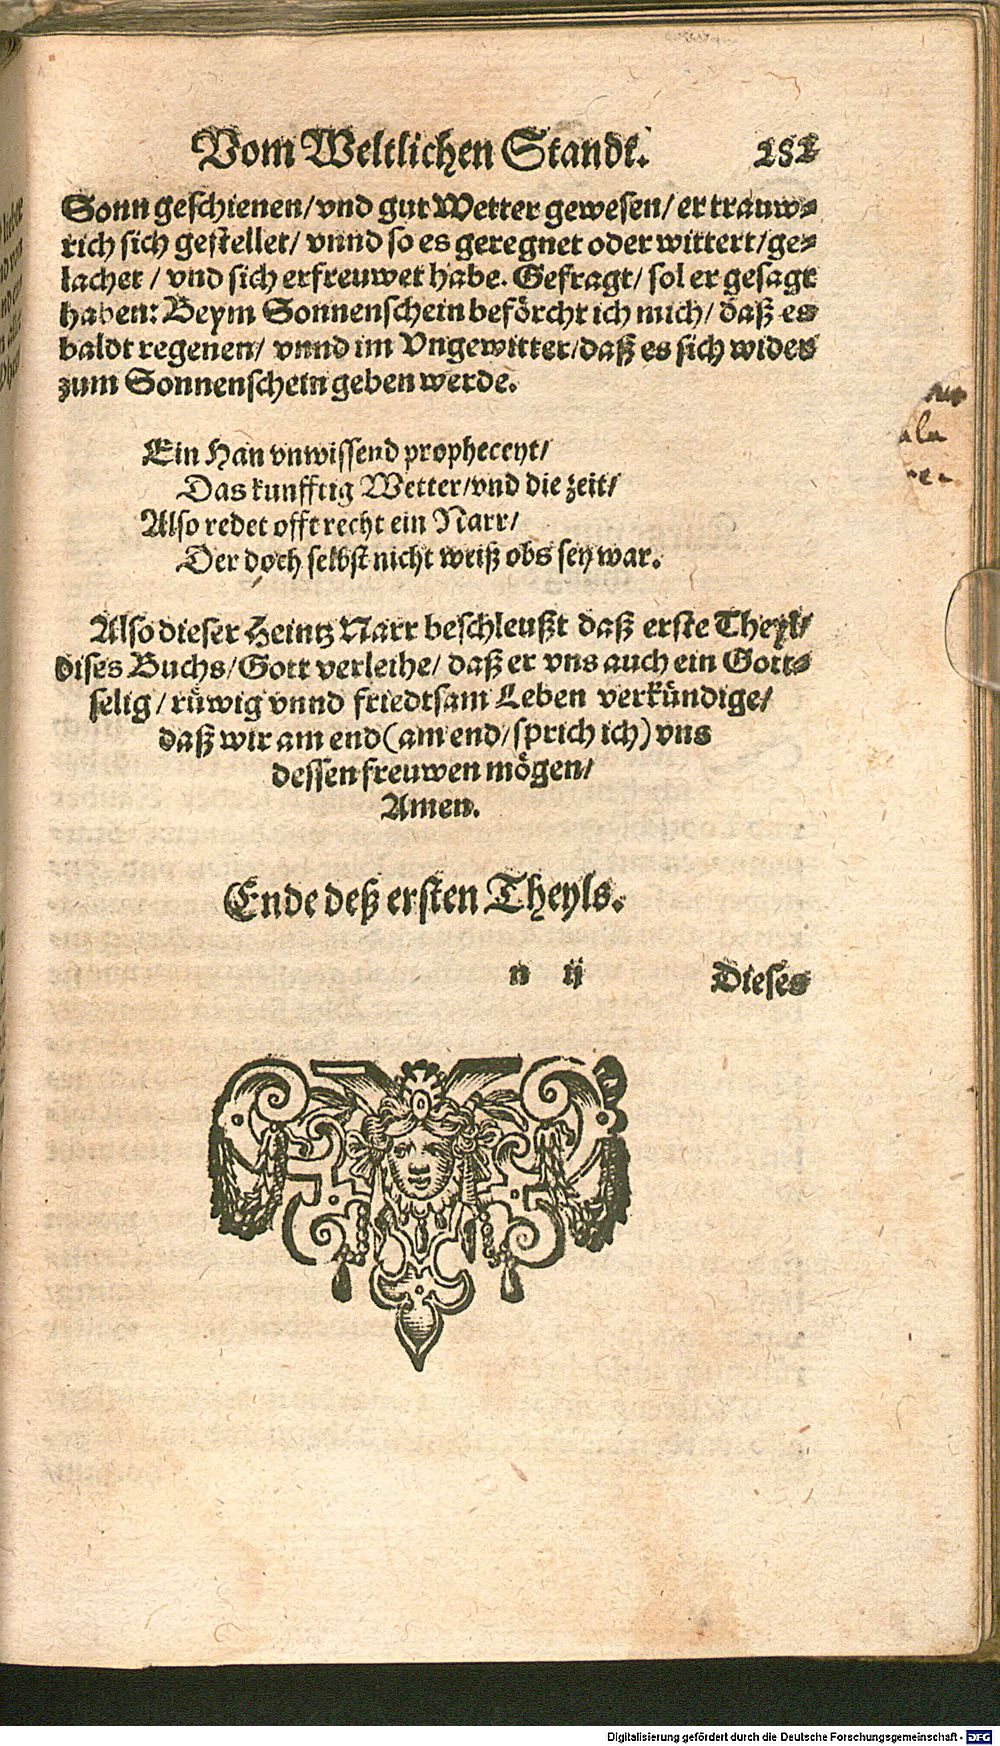 Vom Weltlichen Standt. 282
Sonn geschienen/ vnd gut Wetter gewesen/ er trauw-
rich sich gestellet/ vnnd so es geregnet oder wittert/ ge-
lachet / vnd sich erfreuwet habe. Gefragt/ sol er gesagt
haben: Beym Sonnenschein beförcht ich mich/ daß es
baldt regenen/ vnnd im Vngewitter/ daß es sich wider
zum Sonnenschein geben werde.
Ein Han vnwissend propheceyt/
Das kunfftig Wetter/ vnd die zeit/
Also redet offt recht ein Narr/
Der doch selbst nicht weiß obs sey war.
Also dieser Heintz Narr beschleußt daß erste Theyl/
dises Buchs/ Gott verleihe/ daß er vns auch ein Gott-
selig / rüwig vnnd friedtsam Leben verkündige/
daß wir am end (am end/ sprich ich) vns
dessen freuwen mögen/
Amen.
Ende deß ersten Theyls.
n ij Dieses
Digitalisierung gefördert durch die Deutsche Forschungsgemeinschaft - DFG